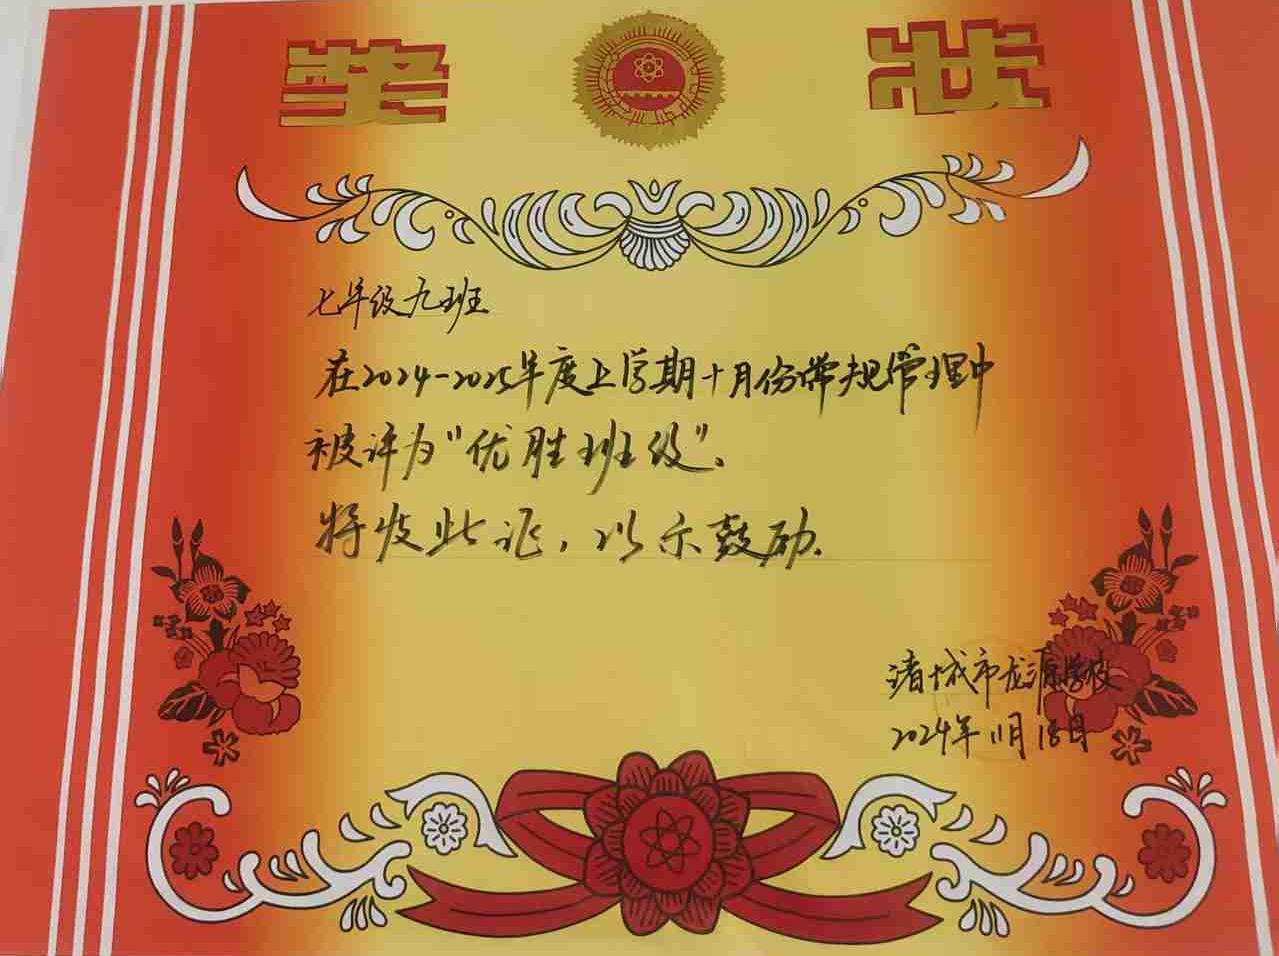 奖状
七年级九班
在2024-2025年度上学期十月份常规管理中
被评为“优胜班级”。
特发此证，以示鼓励。
诸城市龙源学校
2024年11月18日